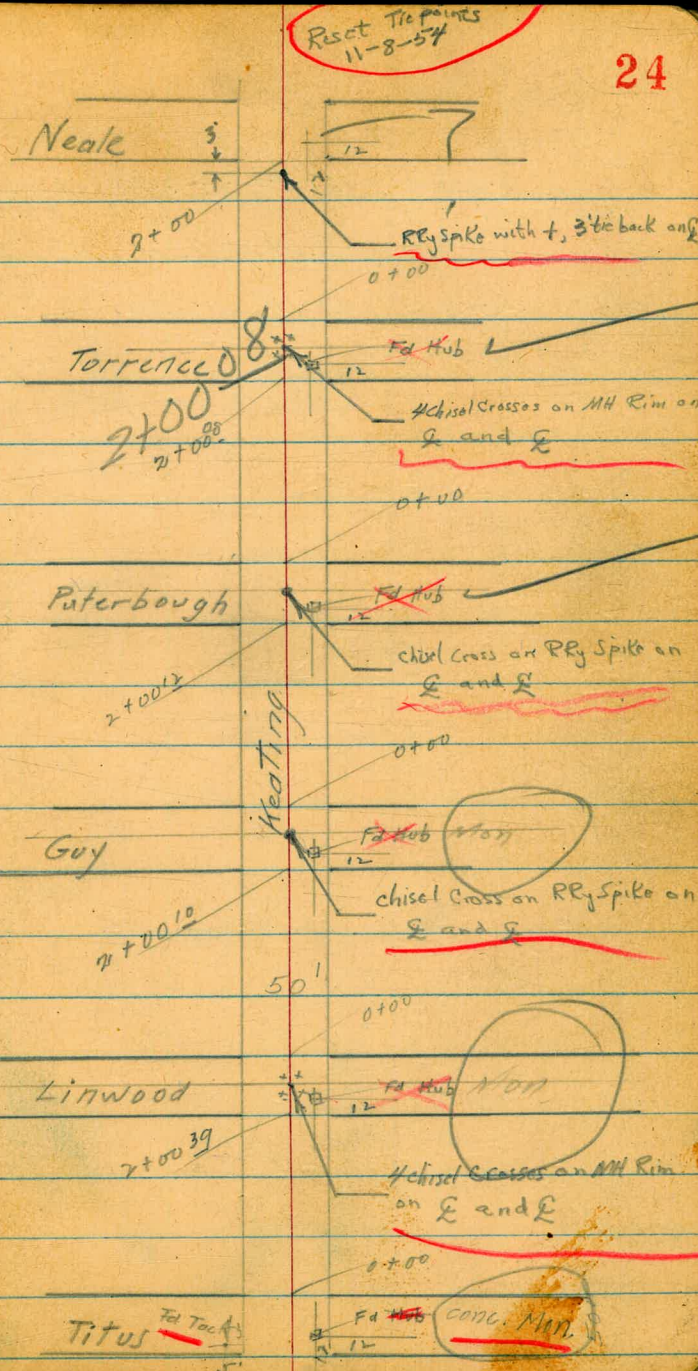 Reset Tie points
11-8-54
24
Neale
3'
12
12
2+00
RRy Spike with +, 3' tie back on ℄
0+00
Torrence
08
Fd Hub
12
2+00
2+00 08
4 chisel Crosses on MH Rim on
℄ and ℄
0+00
Puterbough
Fd Hub
12
chisel Cross on RRy Spike on
℄ and ℄
2+00 12
Keating
0+00
Guy
Fd Hub Mon
12
chisel Cross on RRy Spike on
℄ and ℄
2+00 10
50'
0+00
Linwood
Fd Hub Mon
12
2+00 39
4 chisel Crosses on MH Rim
on ℄ and ℄
0+00
Titus
Fd Tack
Fd Hub conc. Mon.
12